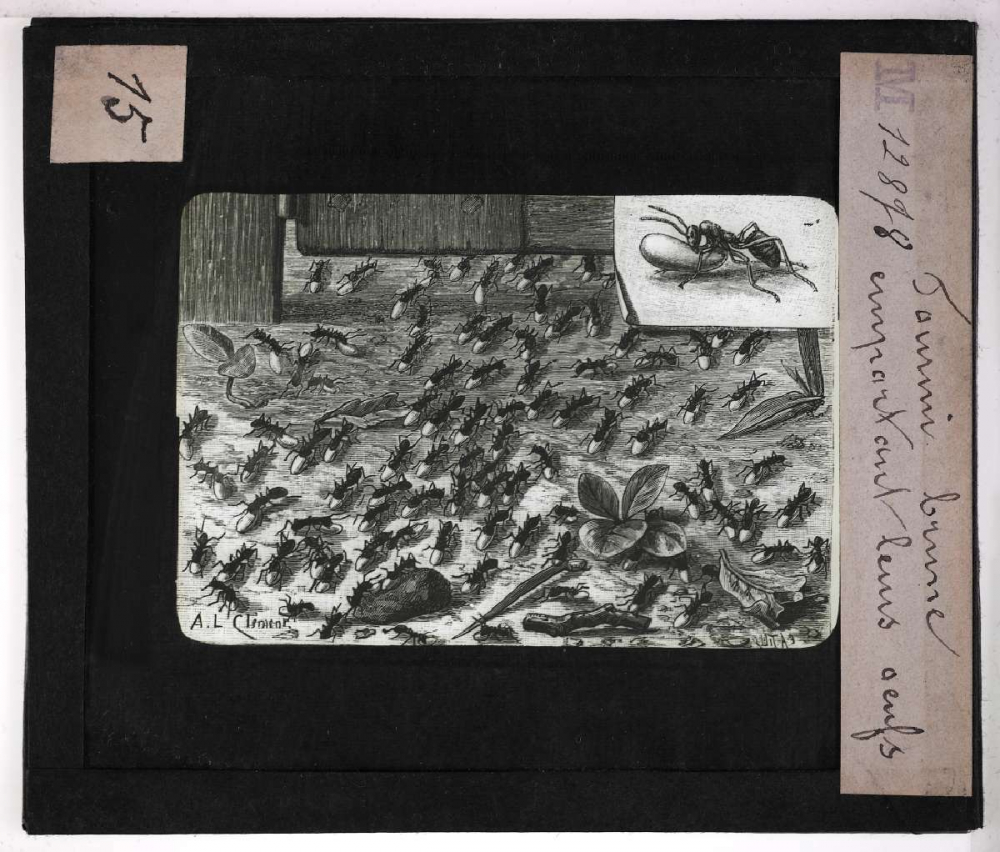 15
M 12898 Fourmi brune
emportant leurs oeufs
A. L. Clément